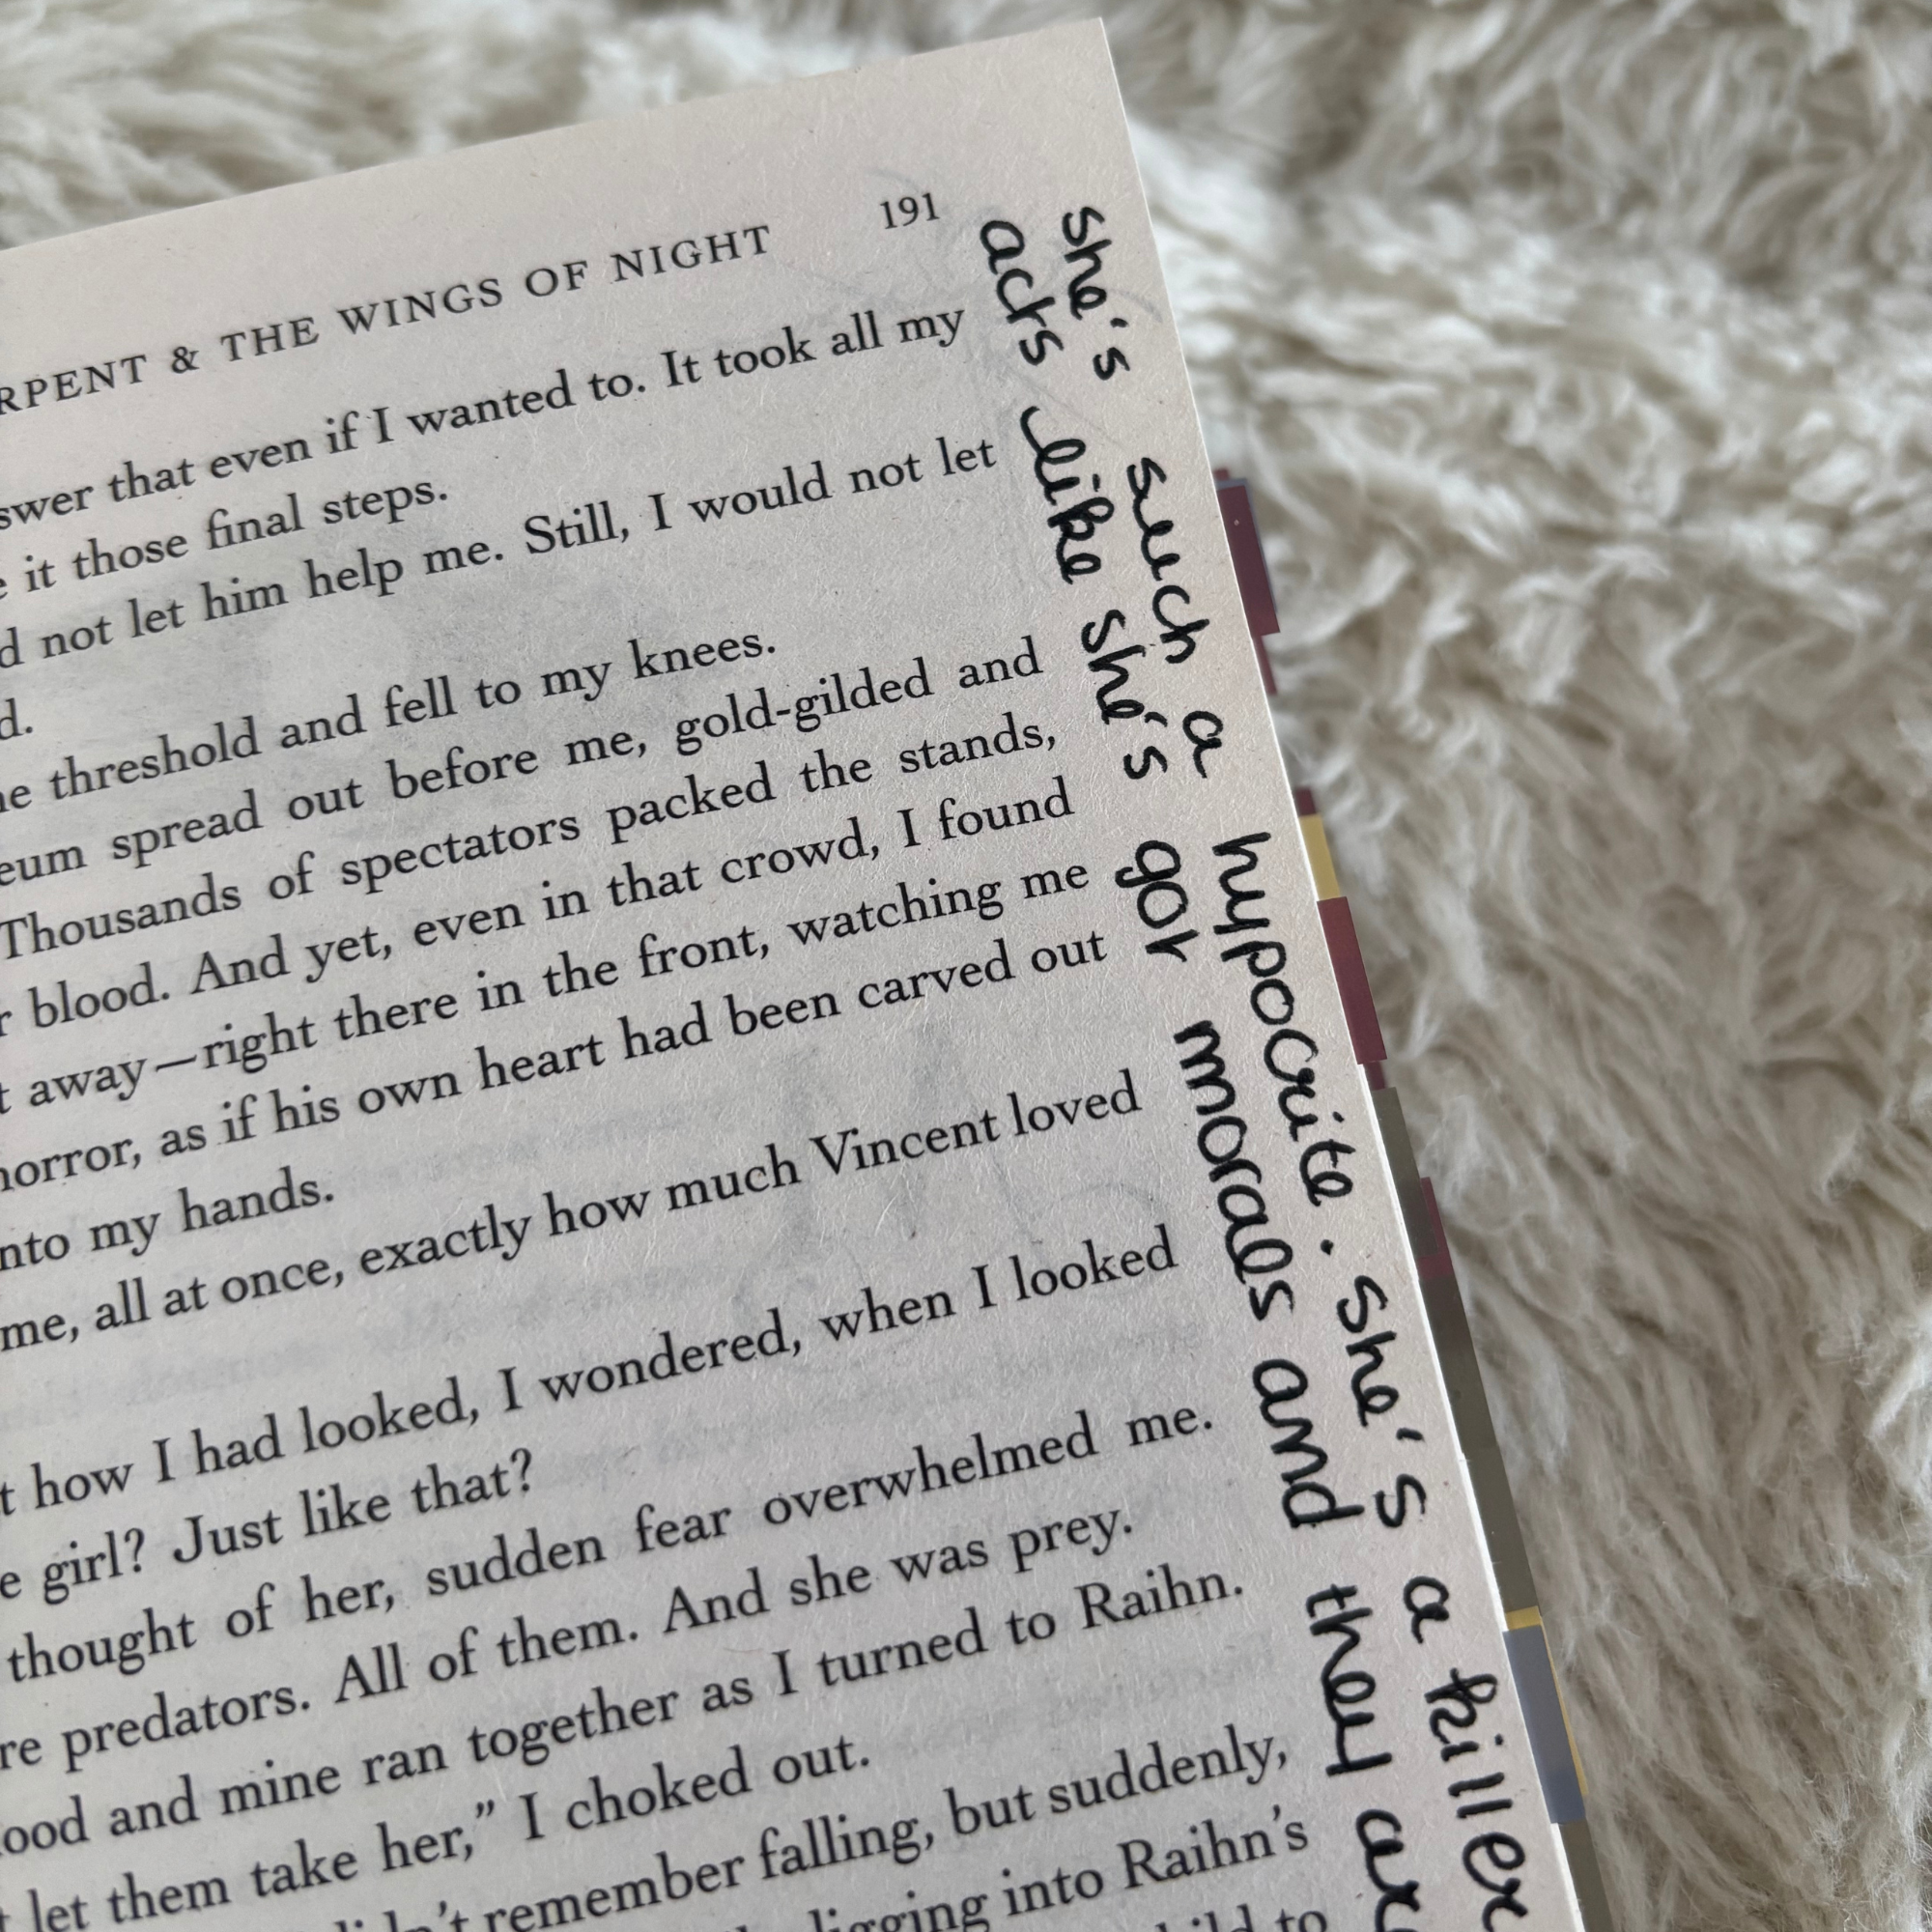 RPENT & THE WINGS OF NIGHT 191
swer that even if I wanted to. It took all my
it those final steps.
d not let him help me. Still, I would not let
d.
he threshold and fell to my knees.
eum spread out before me, gold-gilded and
Thousands of spectators packed the stands,
r blood. And yet, even in that crowd, I found
t away—right there in the front, watching me
horror, as if his own heart had been carved out
nto my hands.
me, all at once, exactly how much Vincent loved
t how I had looked, I wondered, when I looked
e girl? Just like that?
thought of her, sudden fear overwhelmed me.
re predators. All of them. And she was prey.
ood and mine ran together as I turned to Raihn.
t let them take her,” I choked out.
remember falling, but suddenly,
digging into Raihn’s
to
she's such a hypocrite. She's a killer
acts like she's got morals and they ar